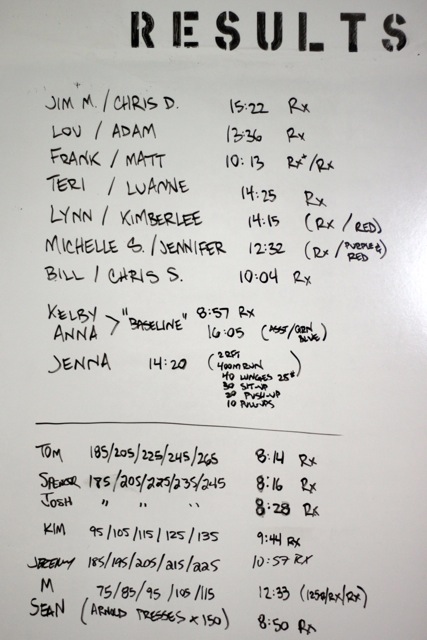 RESULTS
JIM M. / CHRIS D. 15:22 Rx
LOU / ADAM 13:36 Rx
FRANK / MATT 10:13 Rx+/Rx
TERI / LUANNE 14:25 Rx
LYNN / KIMBERLEE 14:15 (Rx / RED)
MICHELLE S. / JENNIFER 12:32 (Rx / PURPLE & RED)
BILL / CHRIS S. 10:04 Rx
KELBY > "BASELINE" 8:57 Rx
ANNA 16:05 (ASST/GRN BLUE)
JENNA 14:20 (2 RFT
400M RUN
40 LUNGES 25#
30 SIT-UP
20 PUSH-UP
10 PULL-UPS)
TOM 185/205/225/245/265 8:14 Rx
SPENCER 185/205/225/235/245 8:16 Rx
JOSH " " " 8:28 Rx
KIM 95/105/115/125/135 9:44 Rx
JEREMY 185/195/205/215/225 10:57 RX
M 75/85/95/105/115 12:33 (125#/Rx/Rx)
SEAN (ARNOLD PRESSES x 150) 8:50 Rx